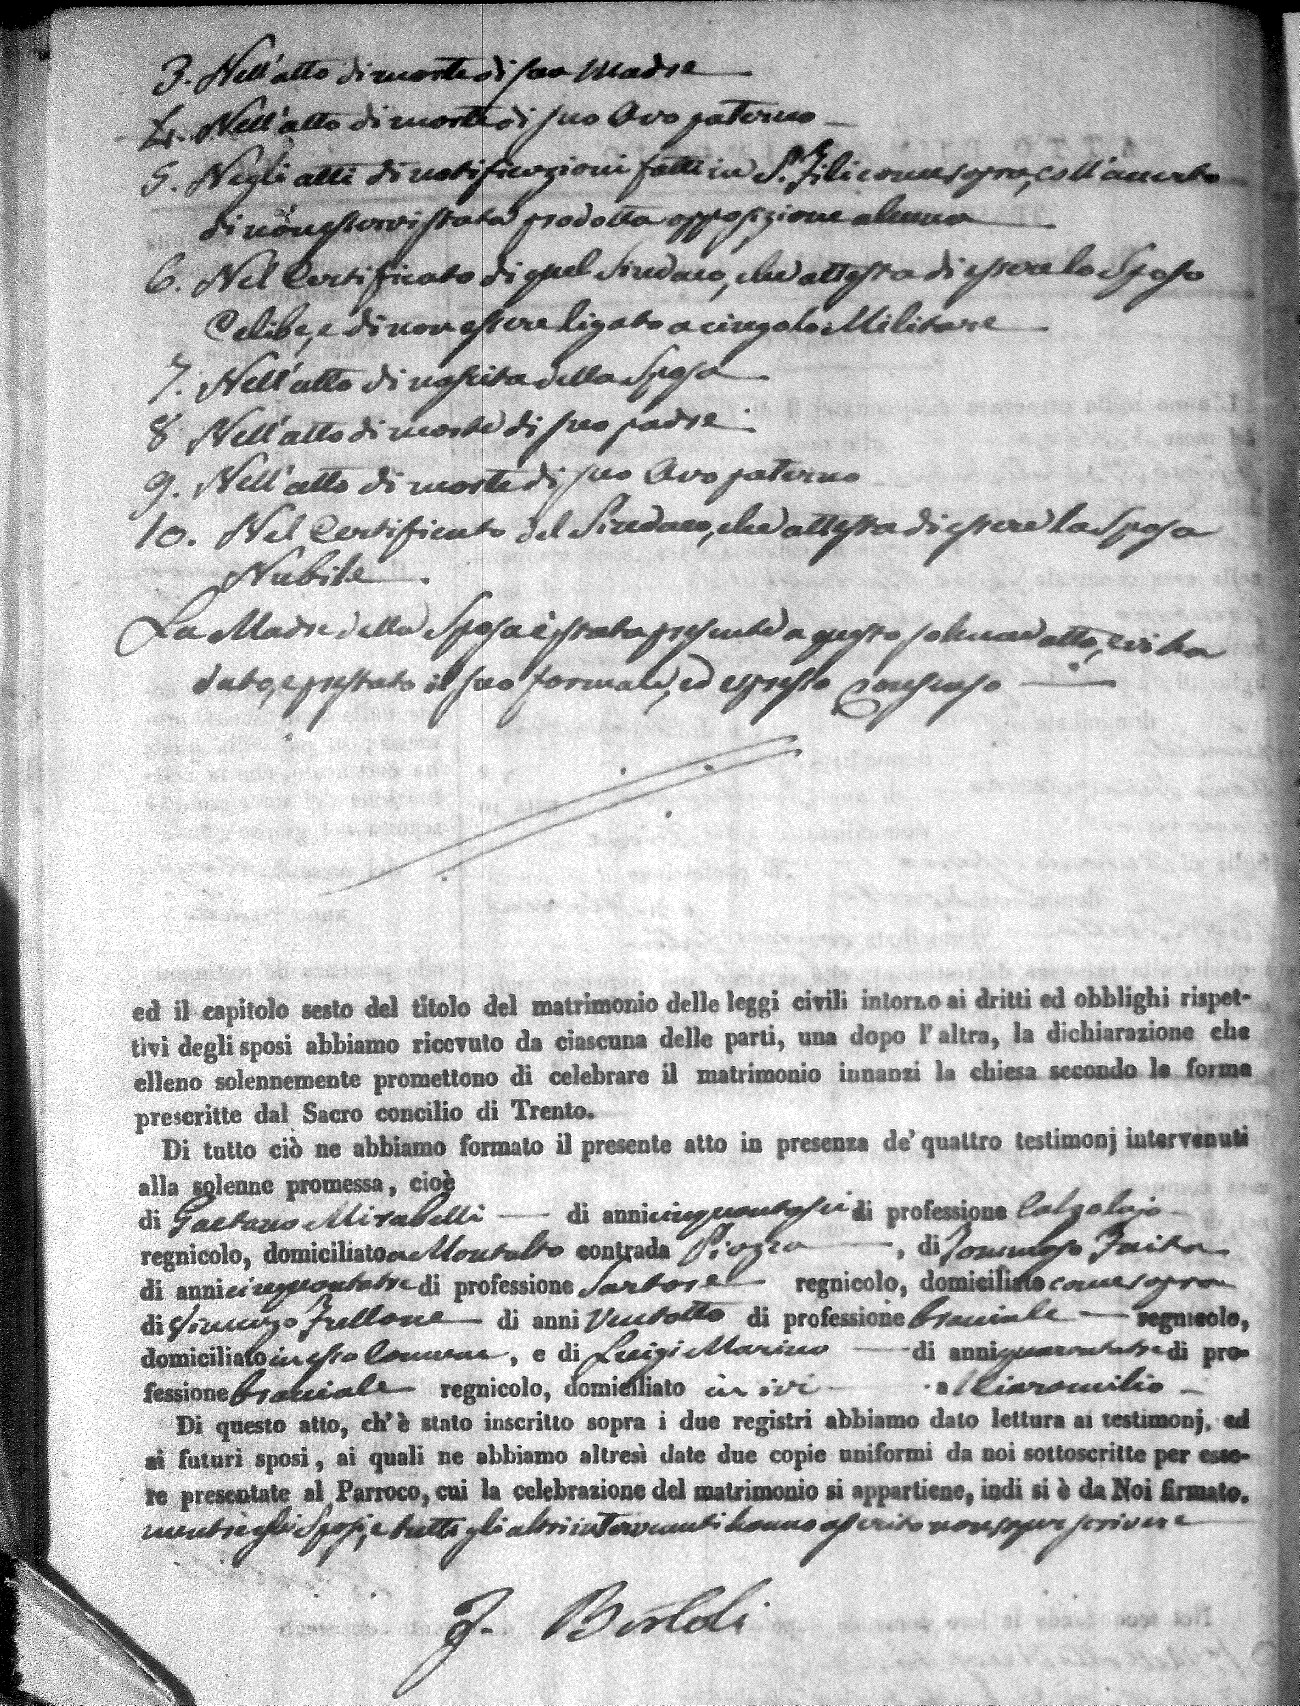 3. Nell'atto di morte di sua Madre
4. Nell'atto di morte di suo Avo paterno
5. Negli atti di notificazioni fatti in S. Fili come sopra, coll'
di non esservi stata prodotta opposizione alcuna
6. Nel Certificato di quel Sindaco, che attesta di essere lo Sposo
Celibe, e di non essere ligato a cingolo Militare
7. Nell'atto di nascita della Sposa
8 Nell'atto di morte di suo padre
9. Nell'atto di morte di suo Avo paterno
10. Nel Certificato del Sindaco, che attesta di essere la Sposa
Nubile
La Madre della Sposa è stata presente a questo solenne atto, e vi ha
dato, e prestato il suo formale, ed espresso Consenso
ed il capitolo sesto del titolo del matrimonio delle leggi civili intorno ai dritti ed obblighi rispet-
tivi degli sposi abbiamo ricevuto da ciascuna delle parti, una dopo l'altra, la dichiarazione che
elleno solennemente promettono di celebrare il matrimonio innanzi la chiesa secondo le forme
prescritte dal Sacro concilio di Trento.
Di tutto ciò ne abbiamo formato il presente atto in presenza de' quattro testimonj intervenuti
alla solenne promessa, cioè
di Gaetano Mirabelli di anni cinquantasei di professione Calzolajo
regnicolo, domiciliato a Montalto contrada Piazza, di Tommaso Faita
di anni cinquantatre di professione Sartore regnicolo, domiciliato come sopra
di Vincenzo Fullone di anni Ventotto di professione bracciale regnicolo,
domiciliato in esso Comune, e di Luigi Marino di anni quarantatre di pro-
fessione bracciale regnicolo, domiciliato in ivi a
Di questo atto, ch'è stato inscritto sopra i due registri abbiamo dato lettura ai testimonj, ed
ai futuri sposi, ai quali ne abbiamo altresì date due copie uniformi da noi sottoscritte per esse-
re presentate al Parroco, cui la celebrazione del matrimonio si appartiene, indi si è da Noi firmato.
mentre gli Sposi, e tutti gli altri intervenuti hanno asserito non saper scrivere